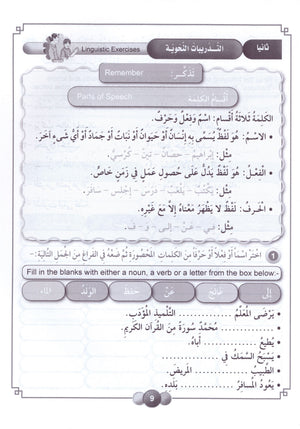 ثانيا
التدريبات النحوية
Linguistic Exercises
تذكر:
Remember
أقسام الكلمة
Parts of Speech
الكلمة ثلاثة أقسام: اسم وفعل وحرف.
• الاسم: هو لفظ يسمى به إنسان أو حيوان أو نبات أو جماد أو أي شيء آخر.
مثل: إبراهيم - حصان - تين - كرسي.
• الفعل: هو لفظ يدل على حصول عمل في زمن خاص.
مثل: يكتب - يلعب - درس - اجلس - سافر.
• الحرف: لفظ لا يظهر معناه إلا مع غيره.
مثل: في - عن - إلى - و - ف.
1 اختر اسما أو فعلا أو حرفا من الكلمات المحصورة ثم ضعه في الفراغ من الجمل التالية:-
Fill in the blanks with either a noun, a verb or a letter from the box below:-
إلى
عالج
عن
حفظ
الولد
الماء
• يرضى المعلم ............ التلميذ المؤدب.
• ............ محمد سورة من القرآن الكريم.
• يطيع ............ أباه.
• يسبح السمك في ............
• الطبيب ............ المريض.
• يعود المسافر ............ بلده.
9